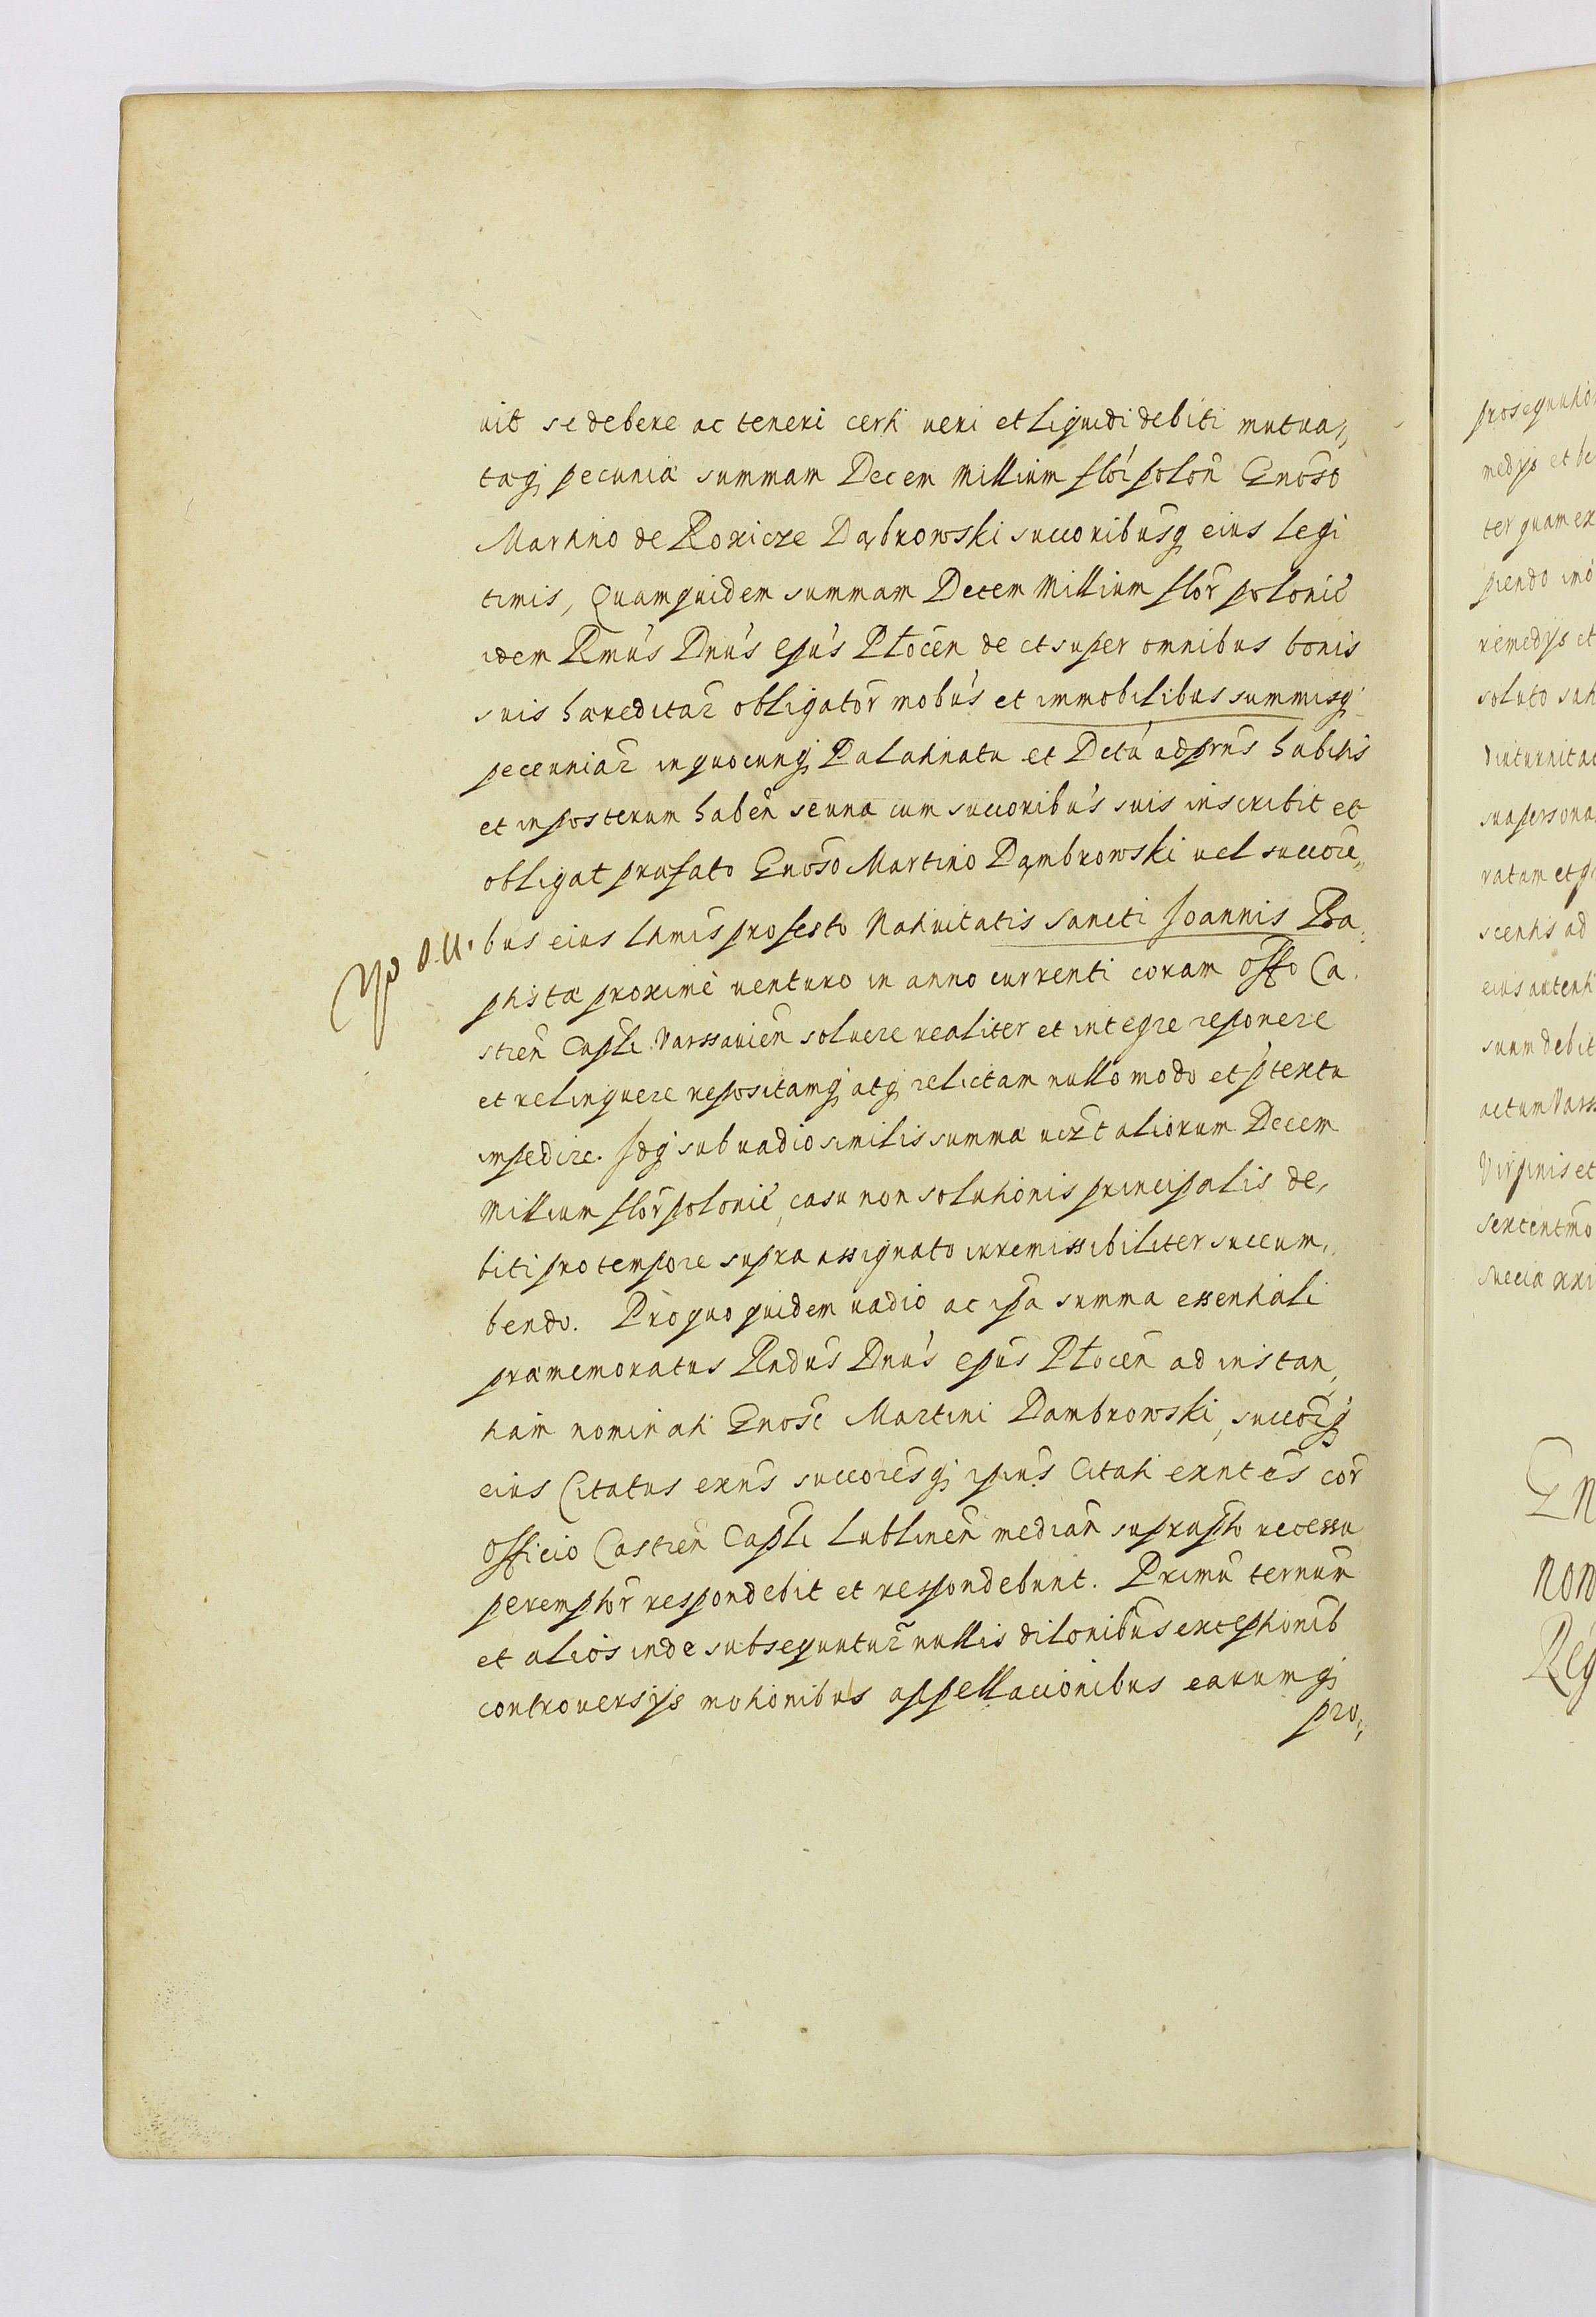 uit se debere ac teneri certi ueri et liquidi debiti mutua,,
taq; pecuniæ summam Decem Millium flor polon Gnoso
Martino de Roxicze Dąbrowski succoribusq eius legi
timis, Quamquidem summam Decem Millium flor polonic
idem Rmus Dnus epus Płocen de et super omnibus bonis
suis hæreditar obligator mobus et immobilibus summisq;
pecunniar in quocunq; Palatinatu et Dctu ad prns habitis
et in posterum haben se una cum succoribus suis inscribit et
obligat præfato Gnoso Martino Dąmbrowski uel succori,,
bus eius ltimis pro festo Natiuitatis Sancti Joannis Ba,
ptistæ proximè uenturo in anno currenti coram Offo Ca.
stren Capli Varssauien soluere realiter et integre reponere
et relinquere repositamq; atq; relictam nullo modo et ptextu
impedire. Idq; sub uadio similis summæ uizt aliorum Decem
Millium flor polonic, casu non solutionis principalis de,
biti pro tempore supra assignato irremissibiliter succum,
bendo. Pro quo quidem uadio ac ipsa summa essentiali
præmemoratus Rndus Dnus epus Płocen ad instan,
tiam nominati Gnosi Martini Dambrowski, succorq;
eius Citatus exns succoresq; ipius Citati exntes cor
Officio Castren Capli Lublinen median suprapto recessu
peremptor respondebit et respondebunt. Primu ternum
et alios inde subsequntur nullis dilonibus exceptionib
controuersijs motionibus appellacionibus earumq;
pro,,